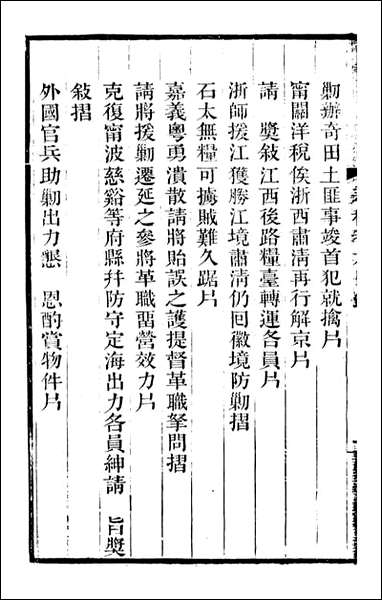 勦辦奇田土匪事竣首犯就擒片
甯關洋稅俟浙西肅淸再行解京片
請　獎敍江西後路糧臺轉運各員片
浙師援江獲勝江境肅淸仍回徽境防勦摺
石太無糧可擄賊難久踞片
嘉義粵勇潰散請將貽誤之護提督革職拏問摺
請將援勦遷延之參將革職畱營效力片
克復甯波慈谿等府縣幷防守定海出力各員紳請　旨獎
敍摺
外國官兵助勦出力懇　恩酌賞物件片